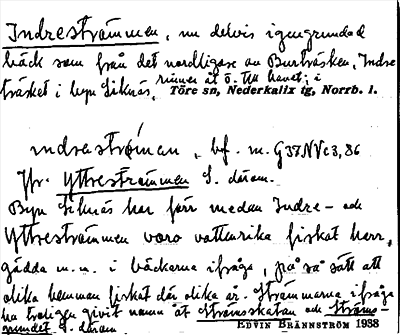 Indreströmmen, nu delvis igengrundad
bäck som från det nordligare av Burträsken, Indre
träsket i byn Siknäs, rinner åt ö. till havet; i
Töre sn, Nederkalix tg, Norrb. l.
ındreströ́men, bf. m. G37NVc3,86
Jfr. Yttreströmmen S. därom.
Byn Siknäs har förr medan Indre- och
Yttreströmmen voro vattenrika fiskat harr,
gädda m.m. i bäckarna ifråga, på så sätt att
olika hemman fiskat där olika år. Strömmarna ifråga
ha troligen givit namn åt Strömskatan och Ströms-
sundet S. därom.
EDVIN BRÄNNSTRÖM 1938